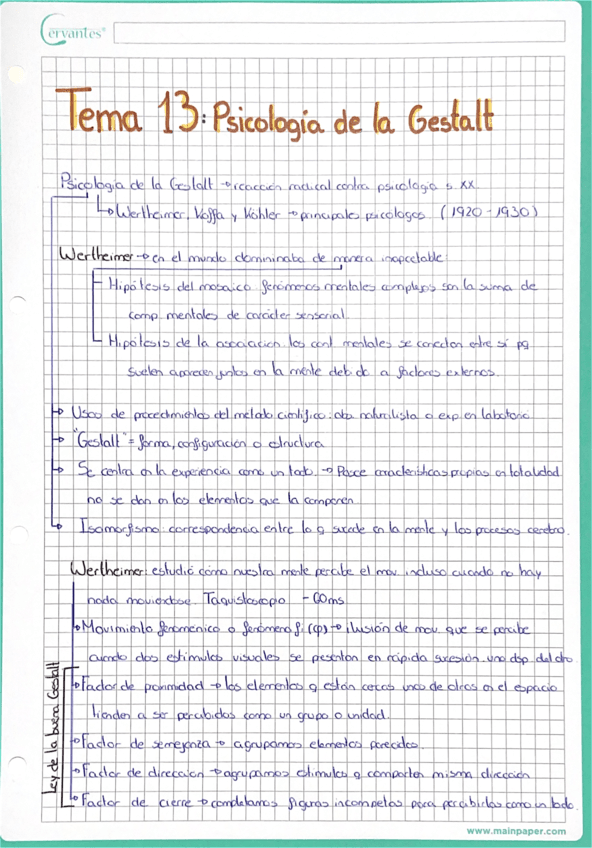 Cervantes®
Tema 13: Psicología de la Gestalt
Psicología de la Gestalt → reacción radical contra psicología s. XX.
↳ Wertheimer, Koffa y Köhler → principales psicologos (1920-1930)
Wertheimer → en el mundo domininaba de manera inapelable:
Hipótesis del mosaico: fenómenos mentales complejos son la suma de
comp. mentales de carácter sensorial.
Hipótesis de la asociación: los cont. mentales se conectan entre sí pq
suelen aparecer juntos en la mente debido a factores externos.
Usoo de procedimientos del metodo científico: obs naturalista o exp. en laboratorio
"Gestalt" = forma, configuración o estructura
Se centra en la experiencia como un todo. → Posee características propias en totalidad
no se dan en los elementos que la componen
Isomorfismo: correspondencia entre lo q sucede en la mente y los procesos cerebro.
Wertheimer: estudió cómo nuestra mente percibe el mov. incluso cuando no hay
nada moviéndose. Taquistoscopio - 60ms
Movimiento fenoménico o fenómeno fi (φ) → ilusión de mov. que se percibe
cuando dos estímulos visuales se presentan en rápida sucesión, uno dsp. del otro
Ley de la buena Gestalt
Factor de proximidad → los elementos q están cercas unos de otros en el espacio
tienden a ser percibidos como un grupo o unidad.
Factor de semejanza → agrupamos elementos parecidos.
Factor de dirección → agrupamos estímulos q comparten misma dirección
Factor de cierre → completamos figuras incompletas para percibirlas como un todo.
www.mainpaper.com